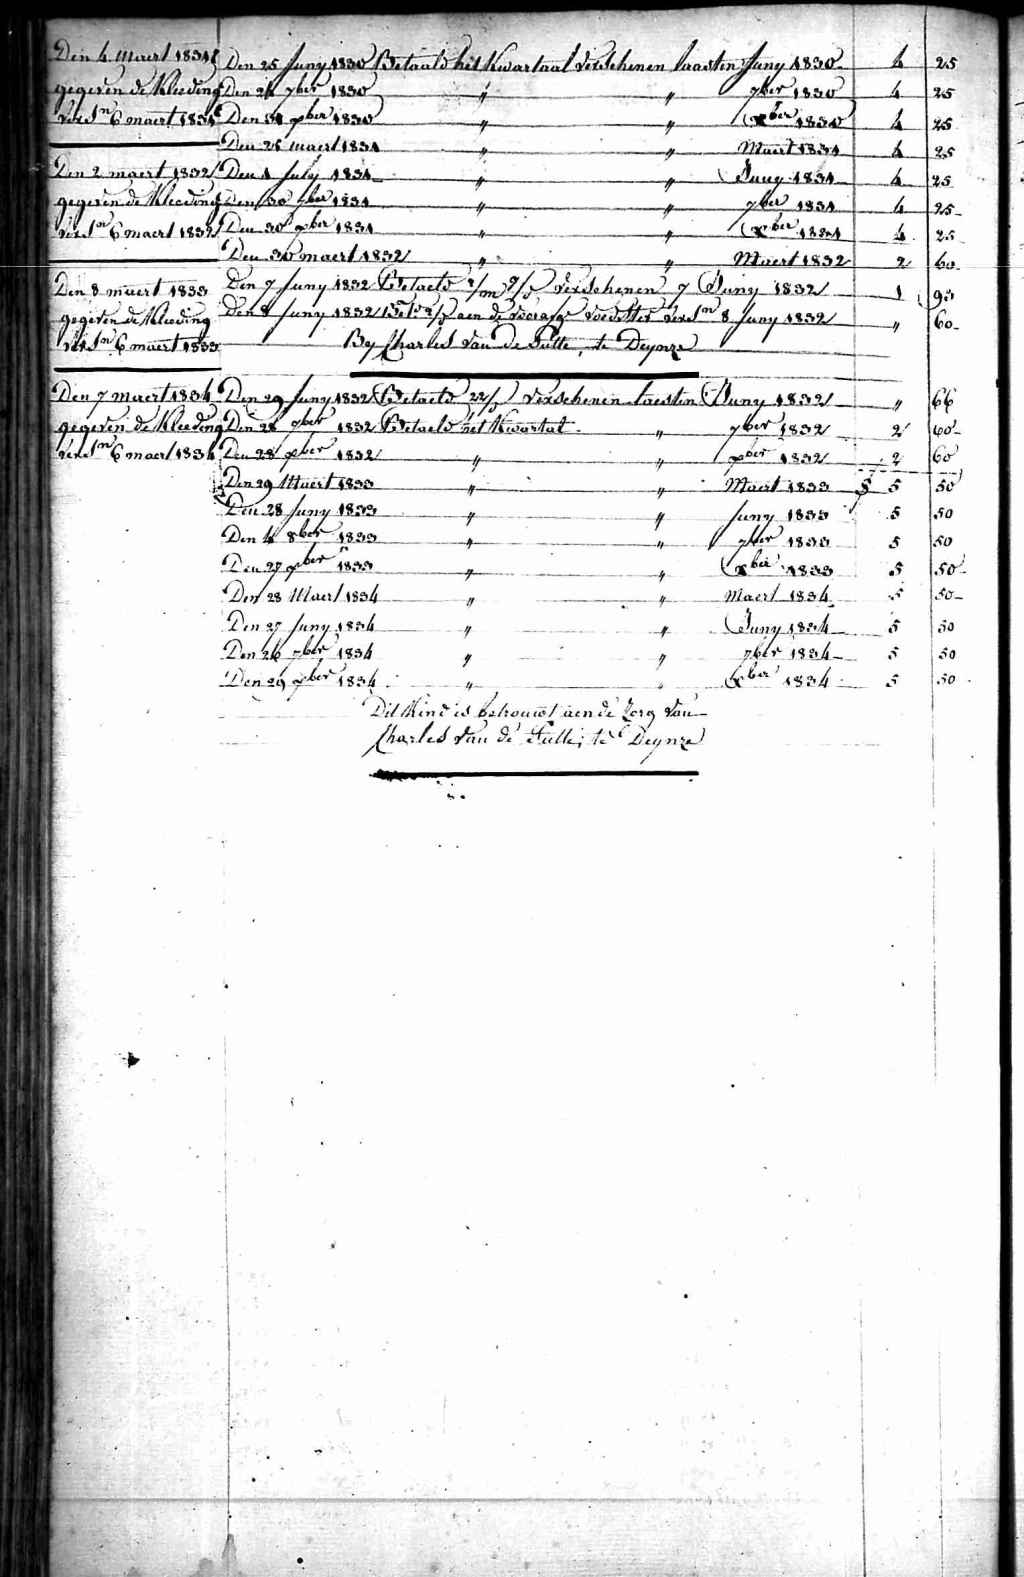 Den 4 Maert 1831
gegeven de Kleeding
versn 6 maert 1831
Den 2 maert 1832
gegeven de Kleeding
versn 6 maert 1832
Den 8 maert 1833
gegeven de Kleeding
versn 6 maert 1833
Den 7 maert 1834
gegeven de Kleeding
versn 6 maert 1834
Den 25 Juny 1830 Betaald het Kwartaal verschenen laasten Juny 1830 4 25
Den 28 7ber 1830 " " 7ber 1830 4 25
Den 31 xber 1830 " " xber 1830 4 25
Den 26 maert 1831 " " Maert 1831 4 25
Den 1 July 1831 " " Juny 1831 4 25
Den 30 7ber 1831 " " 7ber 1831 4 25
Den 30 xber 1831 " " xber 1831 4 25
Den 30 maert 1832 " " Maert 1832 2 60
Den 7 Juny 1832 Betaeld verschenen 7 Juny 1832 1 93
Den 8 Juny 1832 aen de voedster versn 8 Juny 1832 " 60
By Charles Van De Putte, te Deynze
Den 29 Juny 1832 Betaeld 22/ verschenen laesten Juny 1832 " 66
Den 28 7ber 1832 Betaeld het Kwartal " 7ber 1832 2 60
Den 28 xber 1832 " " xber 1832 2 60
Den 29 Maert 1833 " " Maert 1833 5 50
Den 28 Juny 1833 " " Juny 1833 5 50
Den 4 8ber 1833 " " 7ber 1833 5 50
Den 27 xber 1833 " " xber 1833 5 50
Den 28 Maert 1834 " " Maert 1834 5 50
Den 27 Juny 1834 " " Juny 1834 5 50
Den 26 7ber 1834 " " 7ber 1834 5 50
Den 29 xber 1834 " " xber 1834 5 50
Dit Kind is betrouwt aen de Zorg Van
Charles Van de Putte, te Deynze